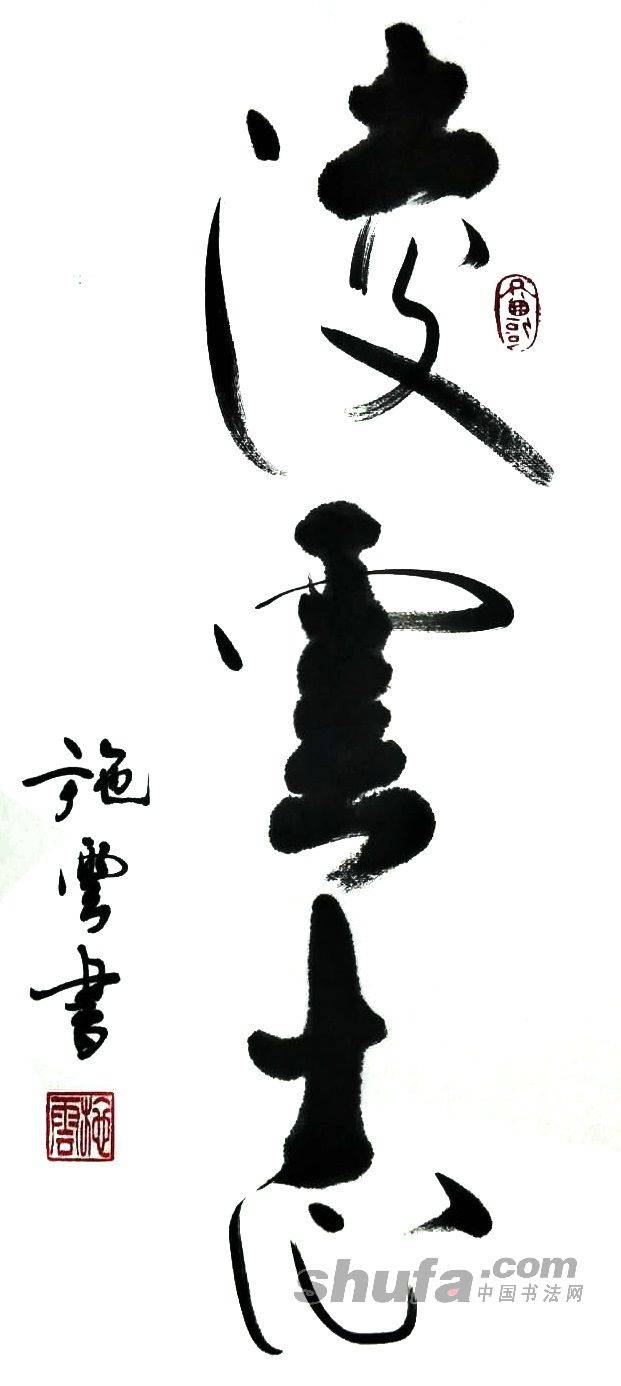 凌雲志
施雲書
施雲
shufa.com
中国书法网